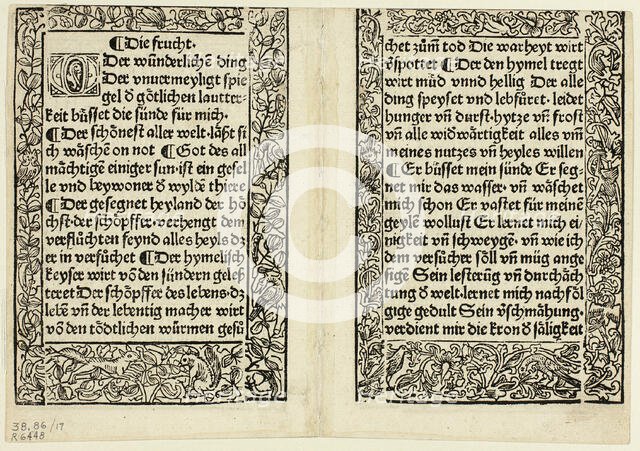 ¶ Die frucht.
O Der wũnderlichẽ ding
Der vnuermeyligt spie
gel d̕ gõtlichen lautter-
keit bũsset die sũnde fũr mich.
¶ Der schõnest aller welt. lãßt si
ch wãschẽ on not ¶ Got des all
mãchtigẽ einiger sun. ist ein gesel
le vnd beywoner d̕ wyldẽ thiere
¶ Der gesegnet heyland der hõ
chst. der schõpffer. verhengt dem
verflũchten feynd alles heyls dz
er in versũchet ¶ Der hymelisch
keyser wirt võ den sũndern geles
teret Der schõpffer des lebens. dz
lebẽ vñ der lebentig macher wirt
võ den tõdtlichen wũrmen gesũ
chet zũm̃ tod Die warheyt wirt
v̕spottet ¶ Der den hymel tregt
wirt mũd vnnd hellig Der alle
ding speyset vnd lebfũret. leidet
hunger vñ durst. hytze vñ frost
vñ alle widwãrtigkeit alles vm̃
meines nutzes vñ heyles willen
¶ Er bũsset mein sũnde Er seg-
net mir das wasser. vñ wãschet
mich schon Er vastet fũr meinẽ
geylẽ wollust Er lernet mich ei
nigkeit vñ schweygẽ. vñ wie ich
dem versũcher sõll vñ mũg ange
sigẽ Sein lesterũg vñ durchãch
tung d̕ welt. lernet mich nachfõl
gige gedult Sein v̕schmãhung.
verdient mir die kron d̕ sãligkeit
38.86/17
R6448